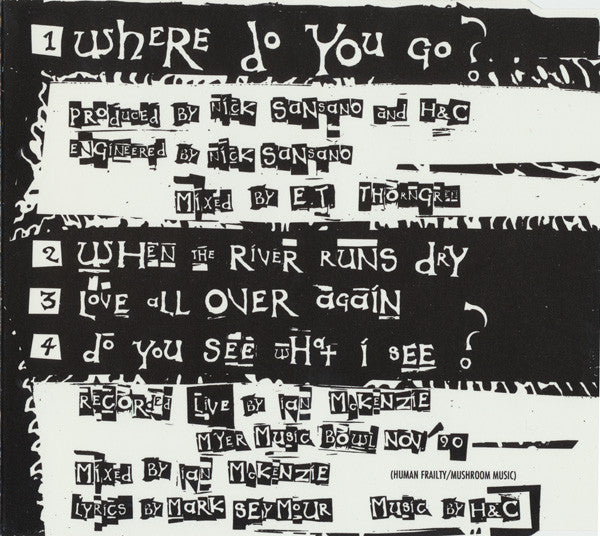 1 WHERE do YOU GO?
PRODUCED BY NICK SANSANO and H&C
ENGINEERED BY NICK SANSANO
MIXED BY E.T. THORNGREN
2 WHEN THE RIVER RUNS dRY
3 LOVE aLL OVER again
4 do YOU SEE WHat i SEE?
RECORded LIVE BY ian McKENZIE
MYER MUSIC BOWL NOV '90
MIXED BY ian McKENZIE
(HUMAN FRAILTY/MUSHROOM MUSIC)
LYRICS BY MARK SEYMOUR MUSIC BY H&C